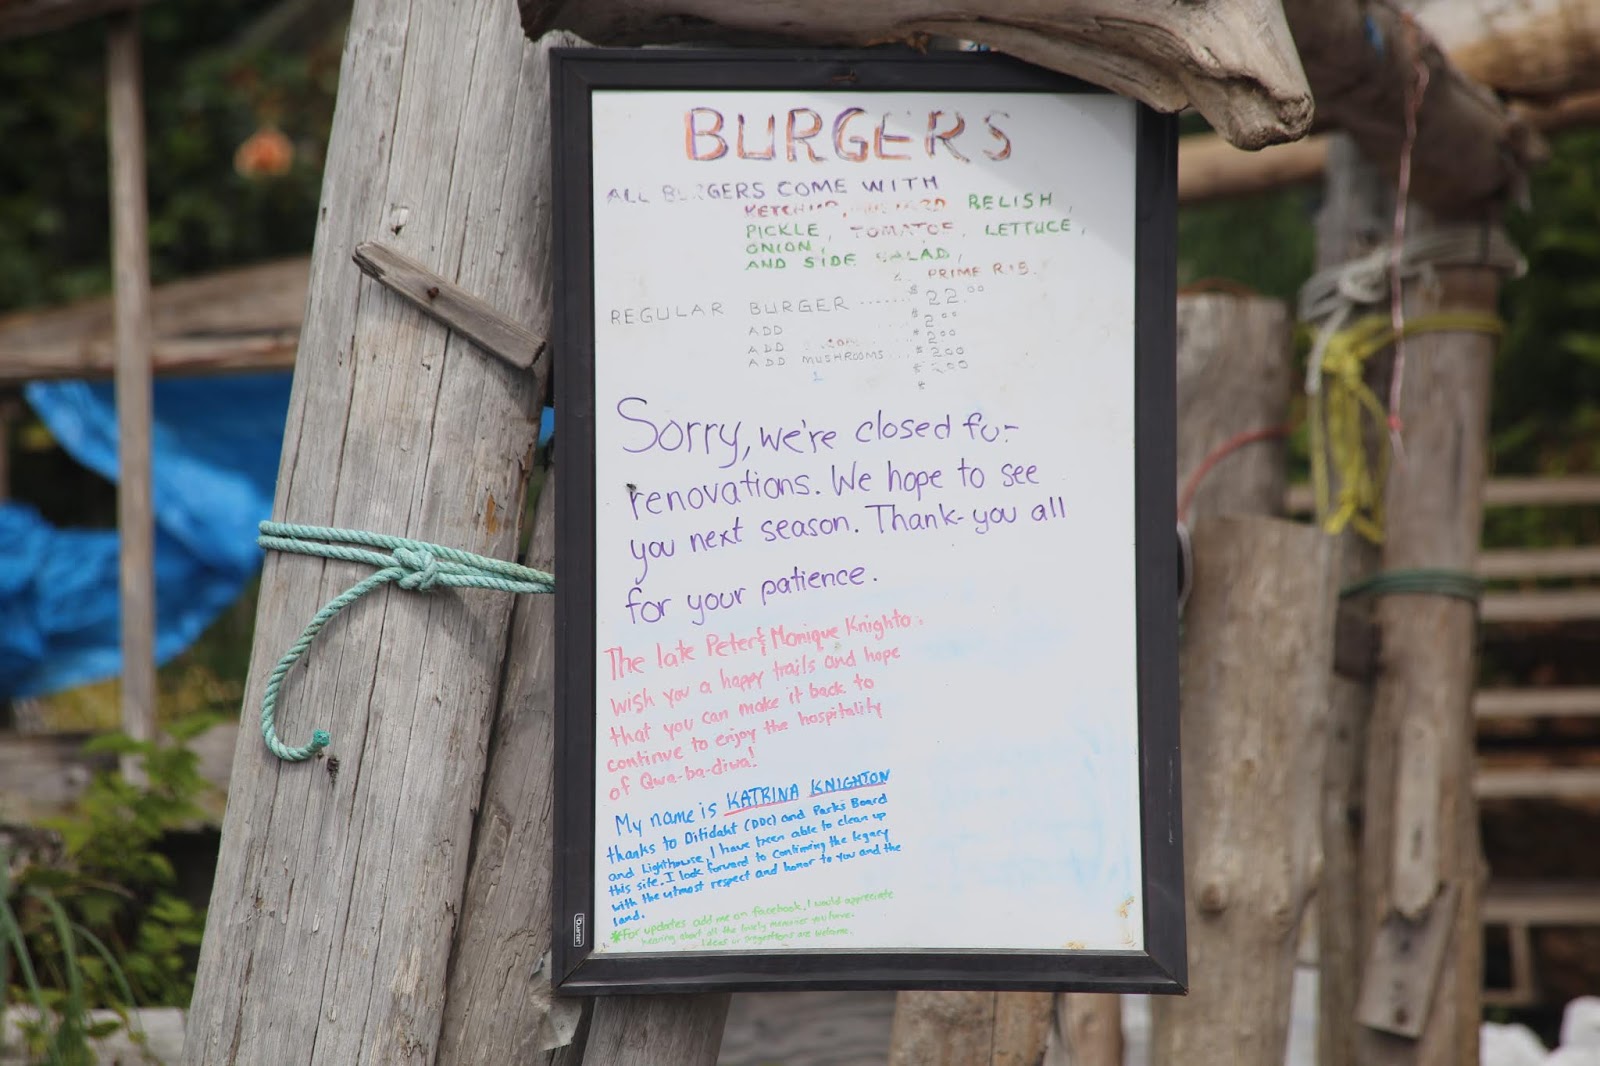 BURGERS
ALL BURGERS COME WITH
KETCHUP, MUSTARD RELISH,
PICKLE, TOMATOE, LETTUCE,
ONION,
AND SIDE SALAD,
PRIME RIB.
REGULAR BURGER ....... $22.00
ADD .... $2.00
ADD $2.00
ADD MUSHROOMS ... $2.00
$2.00
$
Sorry, we're closed for
renovations. We hope to see
you next season. Thank-you all
for your patience.
The late Peter & Monique Knighto
wish you a happy trails and hope
that you can make it back to
continue to enjoy the hospitality
of Qwa-ba-diwa!
My name is KATRINA KNIGHTON
thanks to Ditidaht (DDC) and Parks Board
and Lighthouse, I have been able to clean up
this site. I look forward to continuing the legacy
with the utmost respect and honor to you and the
land.
*For updates add me on facebook, I would appreciate
hearing about all the lovely memories you have.
Ideas or suggestions are welcome.
Quartet